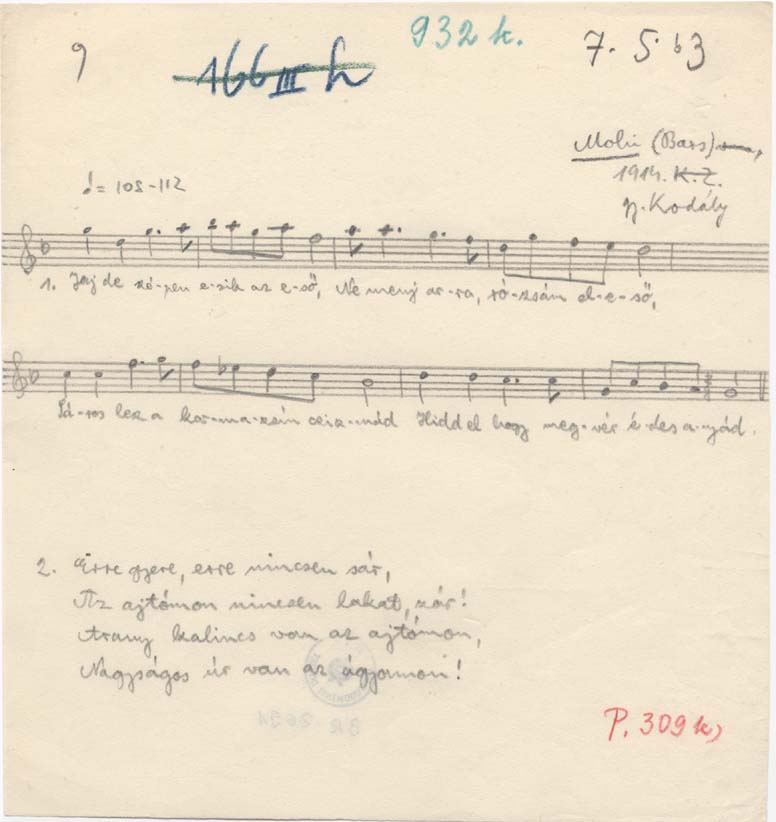 9
166 III h
932 k.
7. 5. b3
Mohi (Bars)
1914. K. Z.
gy. Kodály
= 108-112
1. Jaj de szé-pen e-sik az e-ső, Ne menj ar-ra, ró-zsám el-e-ső,
Sá-ros lesz a kar-ma-zsin csiz-mád Hidd el hogy meg-vér é-des a-nyád.
2. Erre gyere, erre nincsen sár,
Az ajtómon nincsen lakat, zár!
Arany kalincs van az ajtómon,
Nagyságos úr van az ágyamon!
P. 309 k)